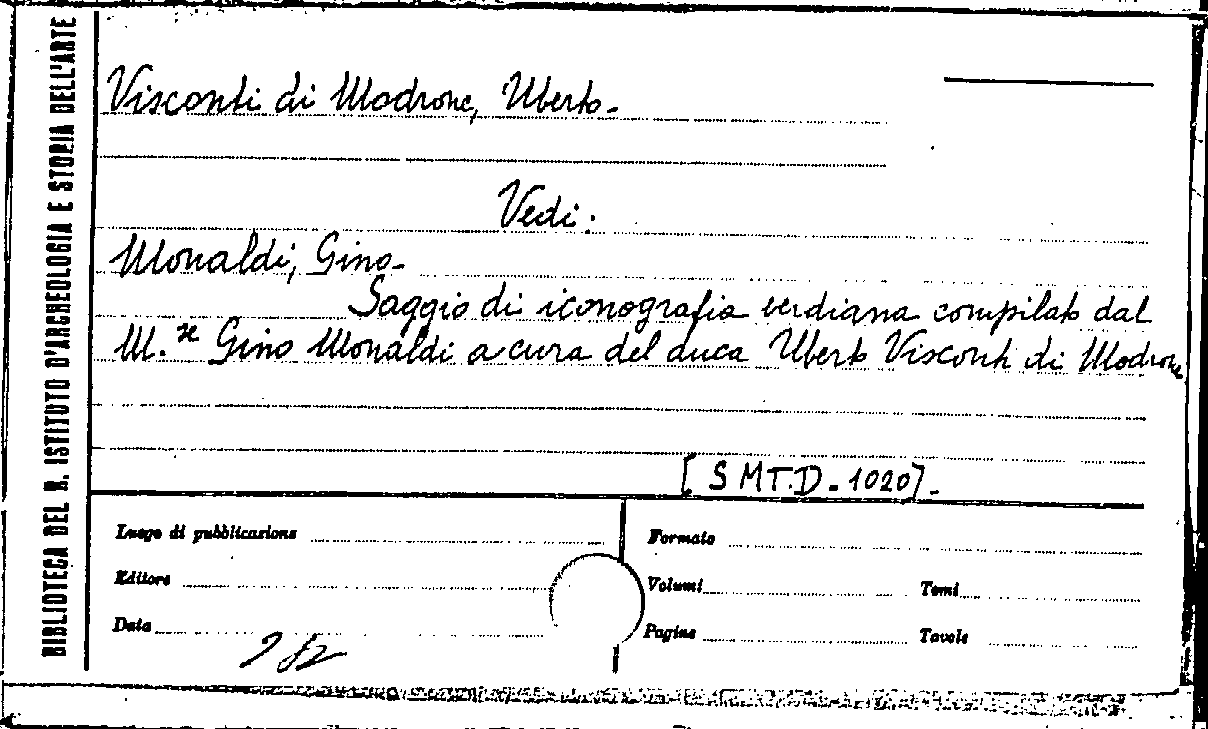 BIBLIOTECA DEL R. ISTITUTO D'ARCHEOLOGIA E STORIA DELL'ARTE
Visconti di Modrone, Uberto.
Vedi:
Monaldi, Gino.
Saggio di iconografia verdiana compilato dal
M.se Gino Monaldi a cura del duca Uberto Visconti di Modrone
[SMT.D. 1020].
Luogo di pubblicazione
Formato
Editore
Volumi
Tomi
Data
Pagine
Tavole